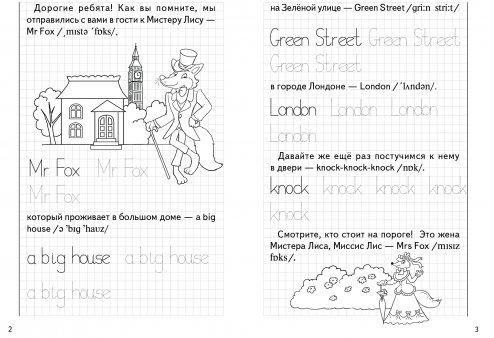 Дорогие ребята! Как вы помните, мы
отправились с вами в гости к Мистеру Лису —
Mr Fox /ˌmɪstə ˈfɒks/,
Mr Fox Mr Fox
Mr Fox
который проживает в большом доме — a big
house /ə ˈbɪg ˈhaʊz/
a big house a big house
a big house
2
на Зелёной улице — Green Street /griːn striːt/
Green Street Green Street
Green Street
в городе Лондоне — London /ˈlʌndən/.
London London London
London
Давайте же ещё раз постучимся к нему
в двери — knock-knock-knock /nɒk/.
knock knock knock knock
knock
Смотрите, кто стоит на пороге! Это жена
Мистера Лиса, Миссис Лис — Mrs Fox /mɪsɪz
fɒks/.
3